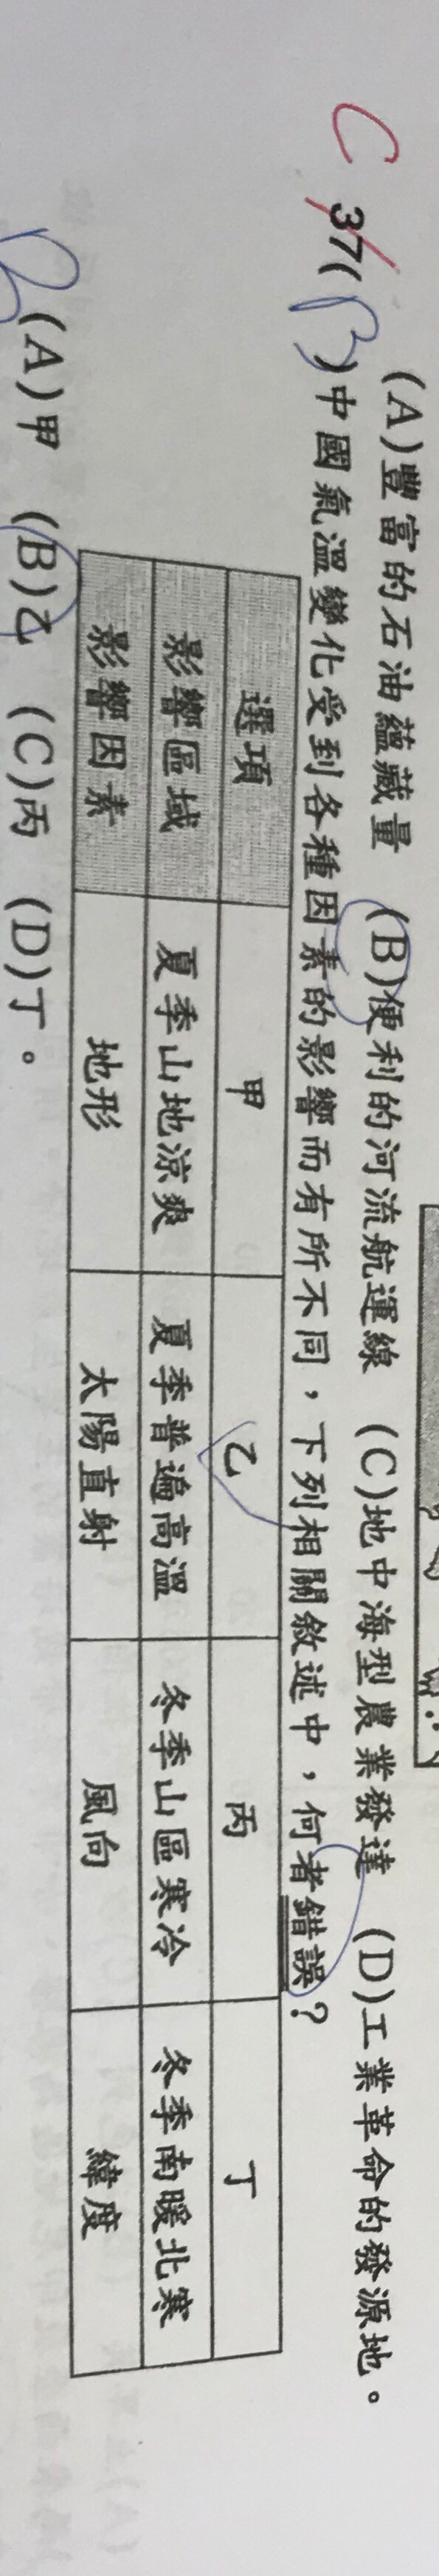 (A)豐富的石油蘊藏量 (B)便利的河流航運線 (C)地中海型農業發達 (D)工業革命的發源地。
C 37(B)中國氣溫變化受到各種因素的影響而有所不同，下列相關敘述中，何者錯誤？
選項 甲 乙 丙 丁
影響區域 夏季山地涼爽 夏季普遍高溫 冬季山區寒冷 冬季南暖北寒
影響因素 地形 太陽直射 風向 緯度
(A)甲 (B)乙 (C)丙 (D)丁。